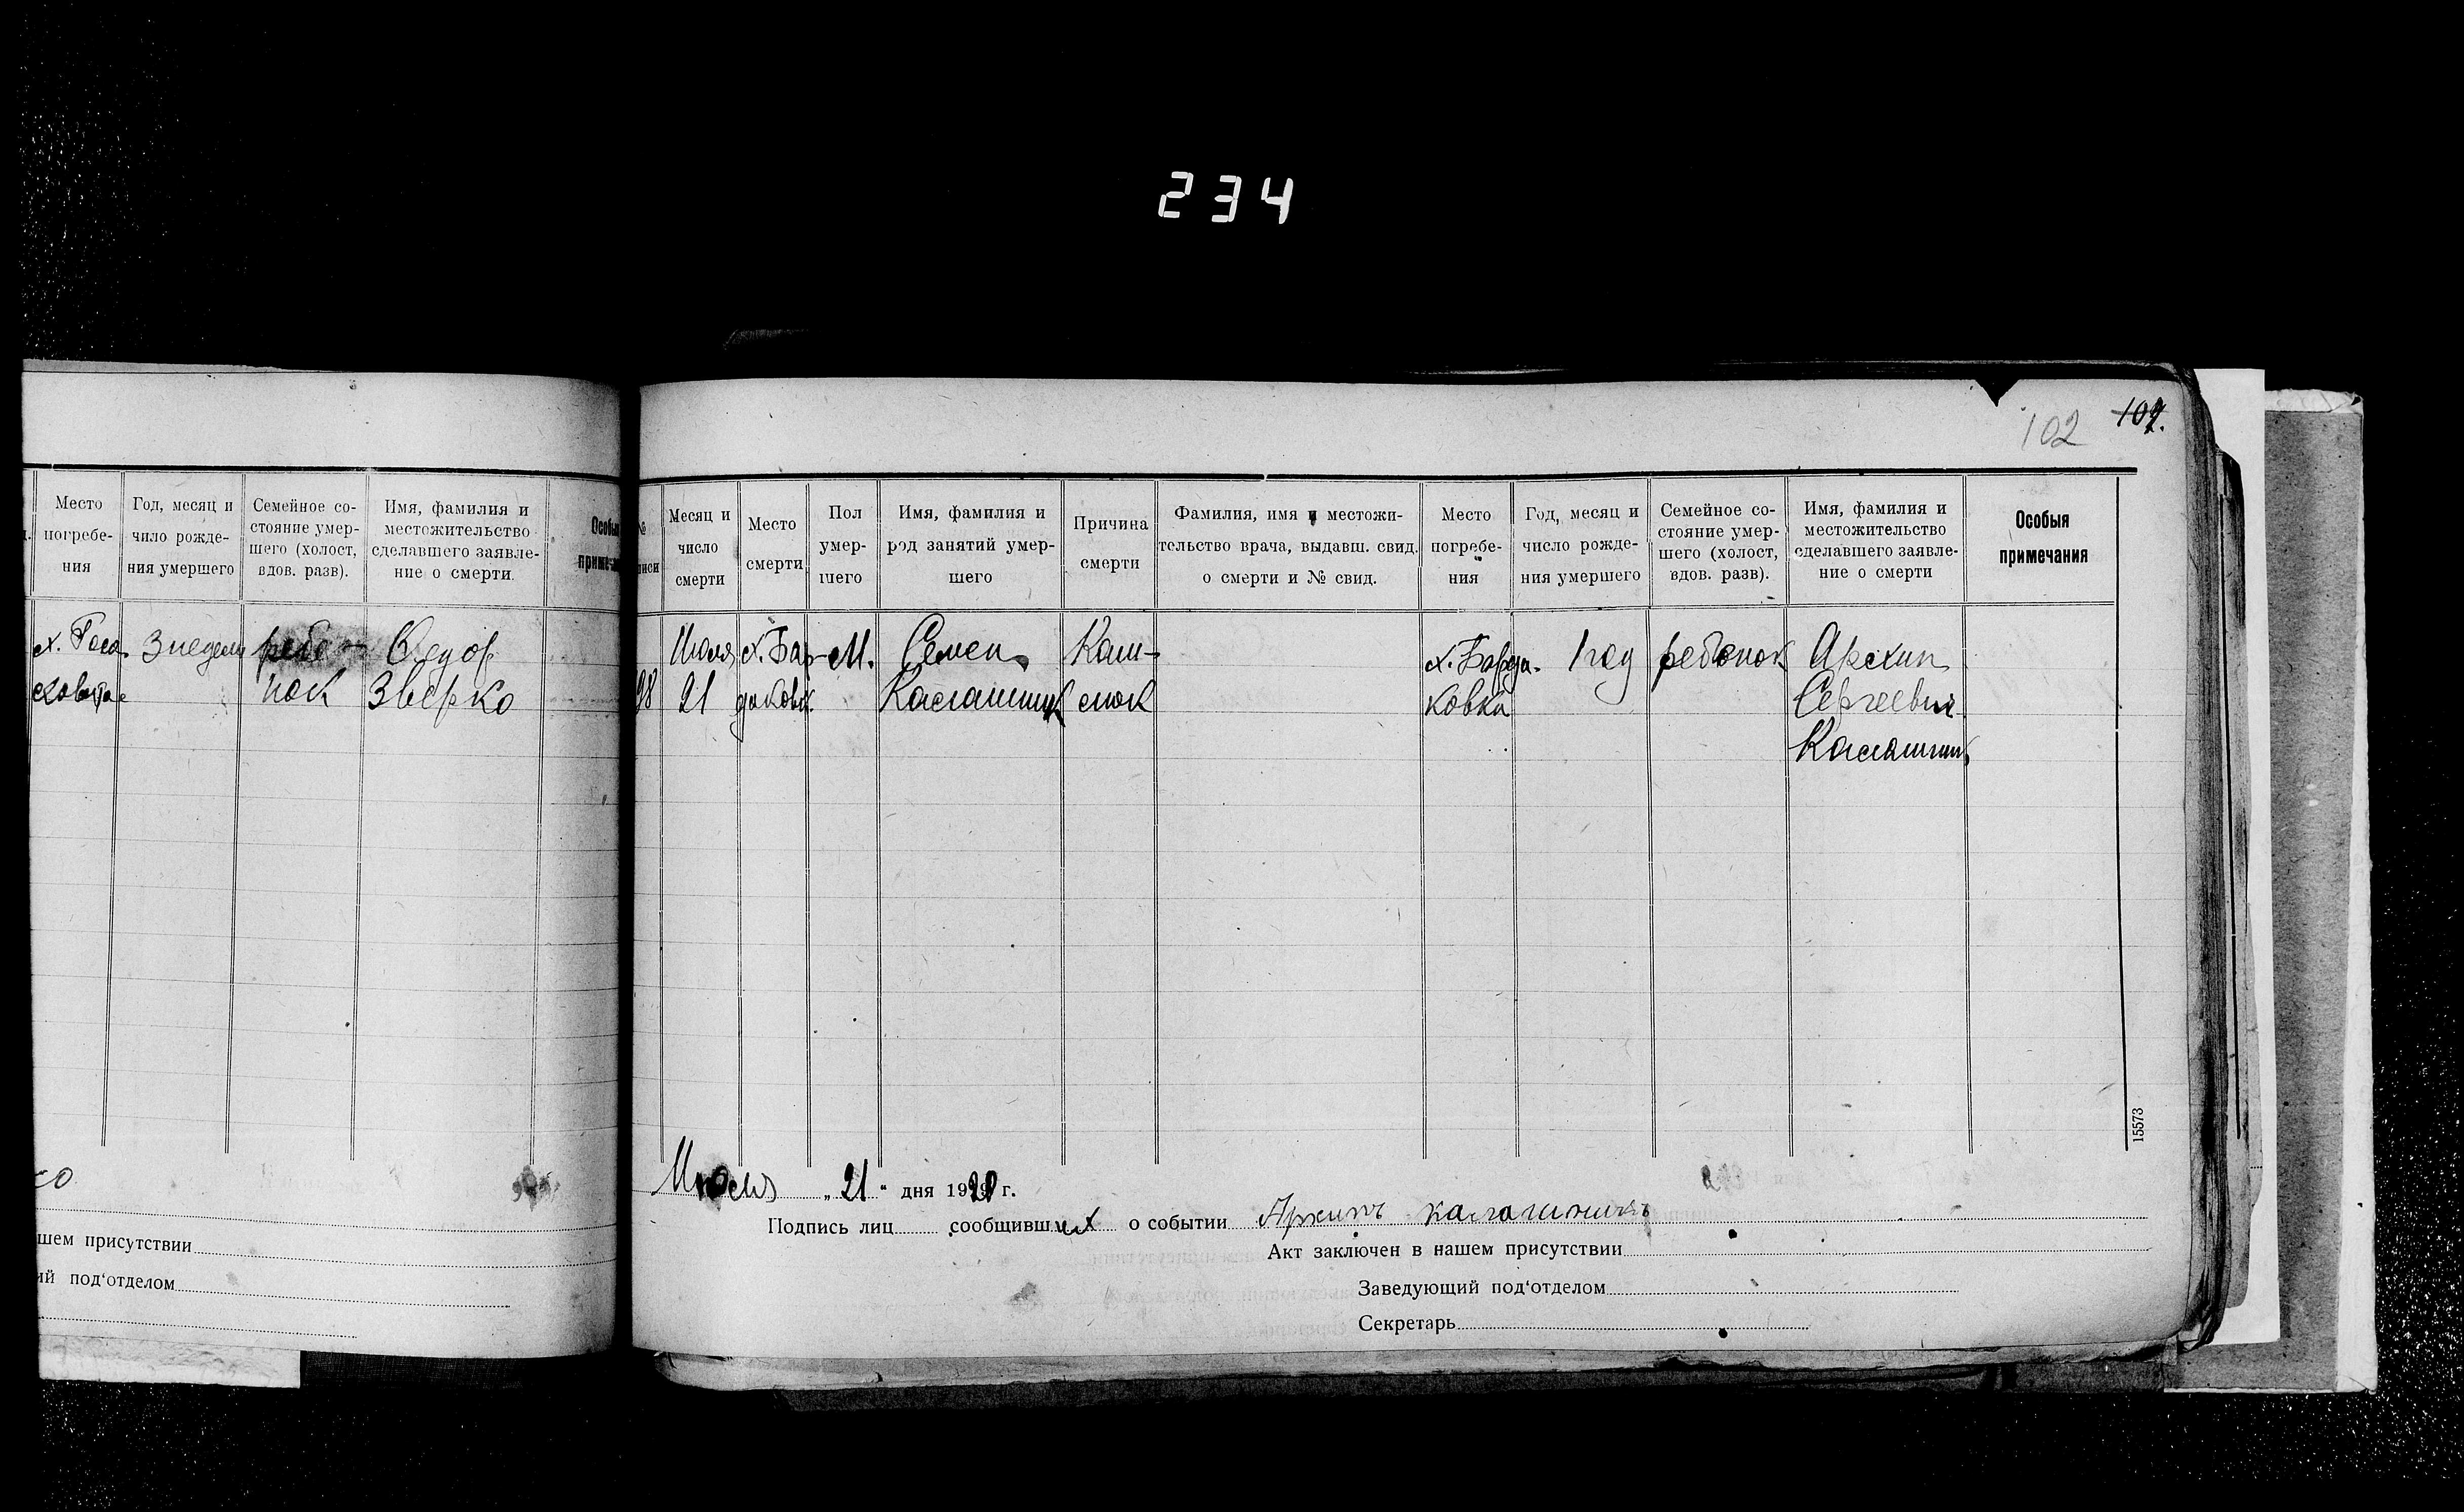 234
102
Место погребе-ния
Год, месяц и чило рожде-ния умершего
Семейное со-стояние умер-шего (холост, вдов. разв).
Имя, фамилия и местожительство сделавшего заявле-ние о смерти.
3 недели
ребе-
Федор
нок
Зверко
шем присутствии
ий под‘отделом
Месяц и число смерти
Место смерти
Пол умер-шего
Имя, фамилия и род занятий умер-шего
Причина смерти
Фамилия, имя и местожи-тельство врача, выдавш. свид. о смерти и № свид.
Место погребе-ния
Год, месяц и число рожде-ния умершего
Семейное со-стояние умер-шего (холост, вдов. разв).
Имя, фамилия и местожительство сделавшего заявле-ние о смерти
Особыя примечания
Июля х. Бар- М. Семен Каш- х. Барда- 1 год ребенок Архип
98 21 даковк. Калашник слюк ковка Сергеевич
Калашник
15573
Июля „ 21 “ дня 1920 г.
Подпись лиц сообщивших о событии Архипъ калашникъ
Акт заключен в нашем присутствии
Заведующий под‘отделом
Секретарь